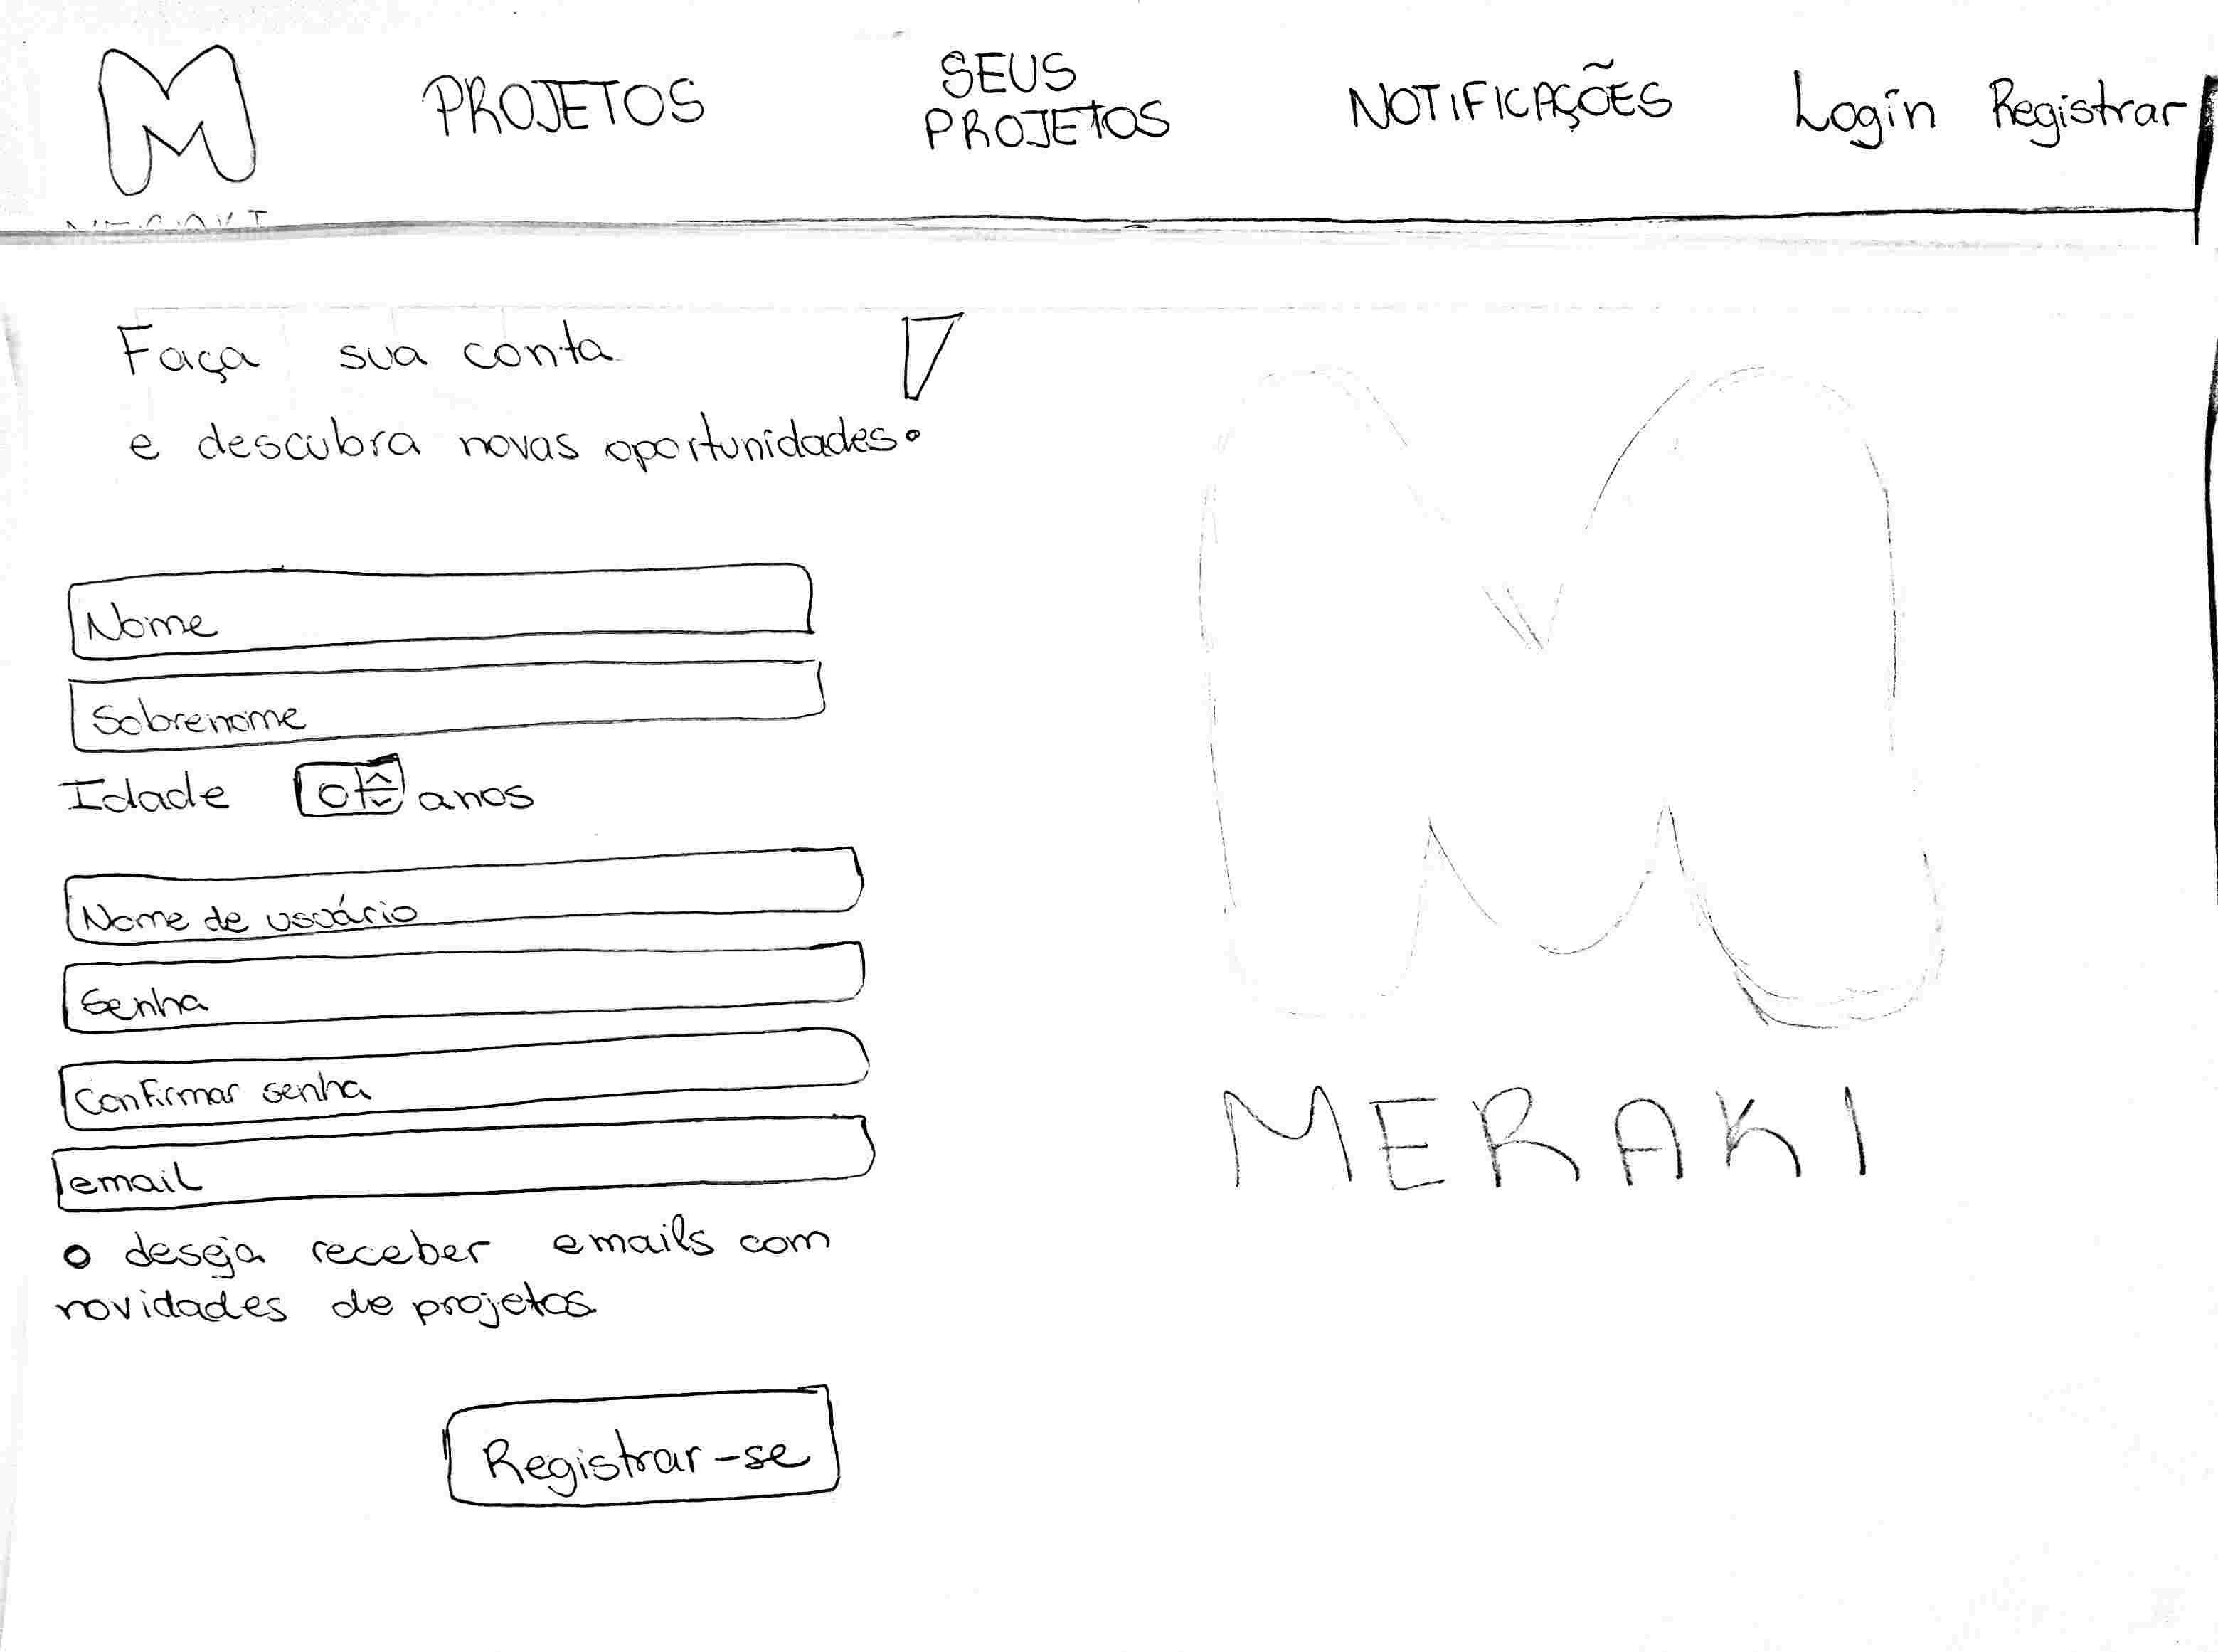 M
PROJETOS
SEUS
PROJETOS
NOTIFICAÇÕES
Login Registrar
Faça sua conta
e descubra novas oportunidades.
Nome
Sobrenome
Idade 0 anos
Nome de usuário
Senha
Confirmar senha
email
M
MERAKI
deseja receber emails com
novidades de projetos
Registrar-se